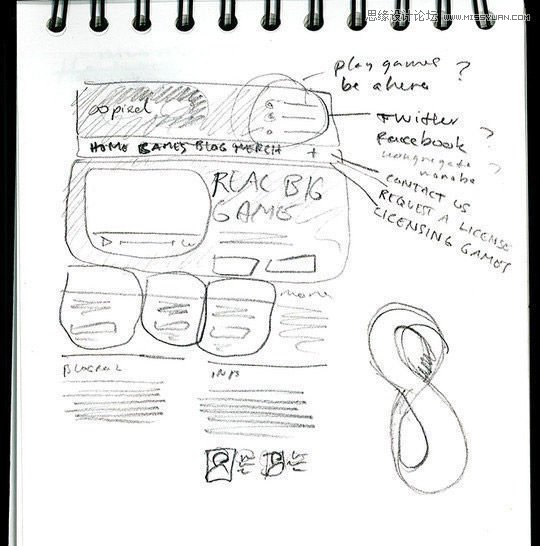 思缘设计论坛 WWW.MISSYUAN.COM
play games ?
be a hero
∞pixel
twitter
facebook ?
HOME GAMES BLOG MERCH +
wanabe
CONTACT US
REQUEST A LICENSE
LICENSING GAMES
REAL BIG
GAME
more
BLOGROLL
INFO